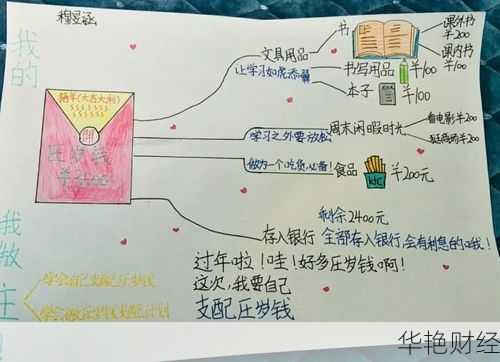 穆昱涵
我的
我做主!
(大吉大利)
压岁钱
文具用品
让学习如虎添翼
书
课外书
¥200
课内书
¥100
书写用品 ¥100
本子 ¥100
学习之外要放松
周末闲暇时光
看电影¥200
¥200
做为一个吃货,必备!
食品
kfc
¥200元
剩余2400元
存入银行 全部存入银行,会有利息的哦!
过年啦!哇!好多压岁钱啊!
这次,我要自己
支配压岁钱
学会自己支配压岁钱
华艳财经